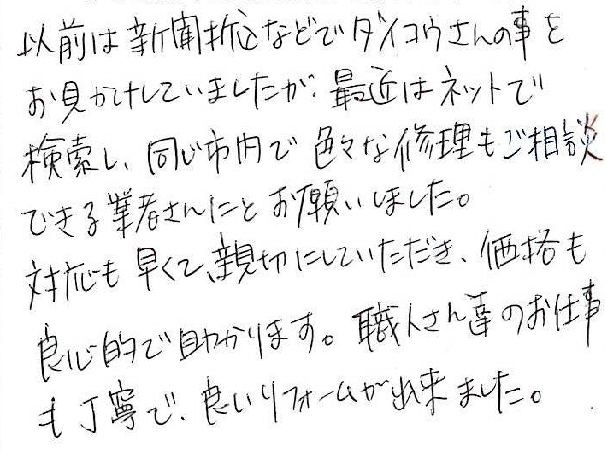 以前は新聞折込などでダイコウさんの事を
お見かけしていましたが、最近はネットで
検索し、同じ市内で色々な修理もご相談
できる業者さんにとお願いしました。
対応も早くて、親切にしていただき、価格も
良心的で助かります。職人さん達のお仕事
も丁寧で、良いリフォームが出来ました。